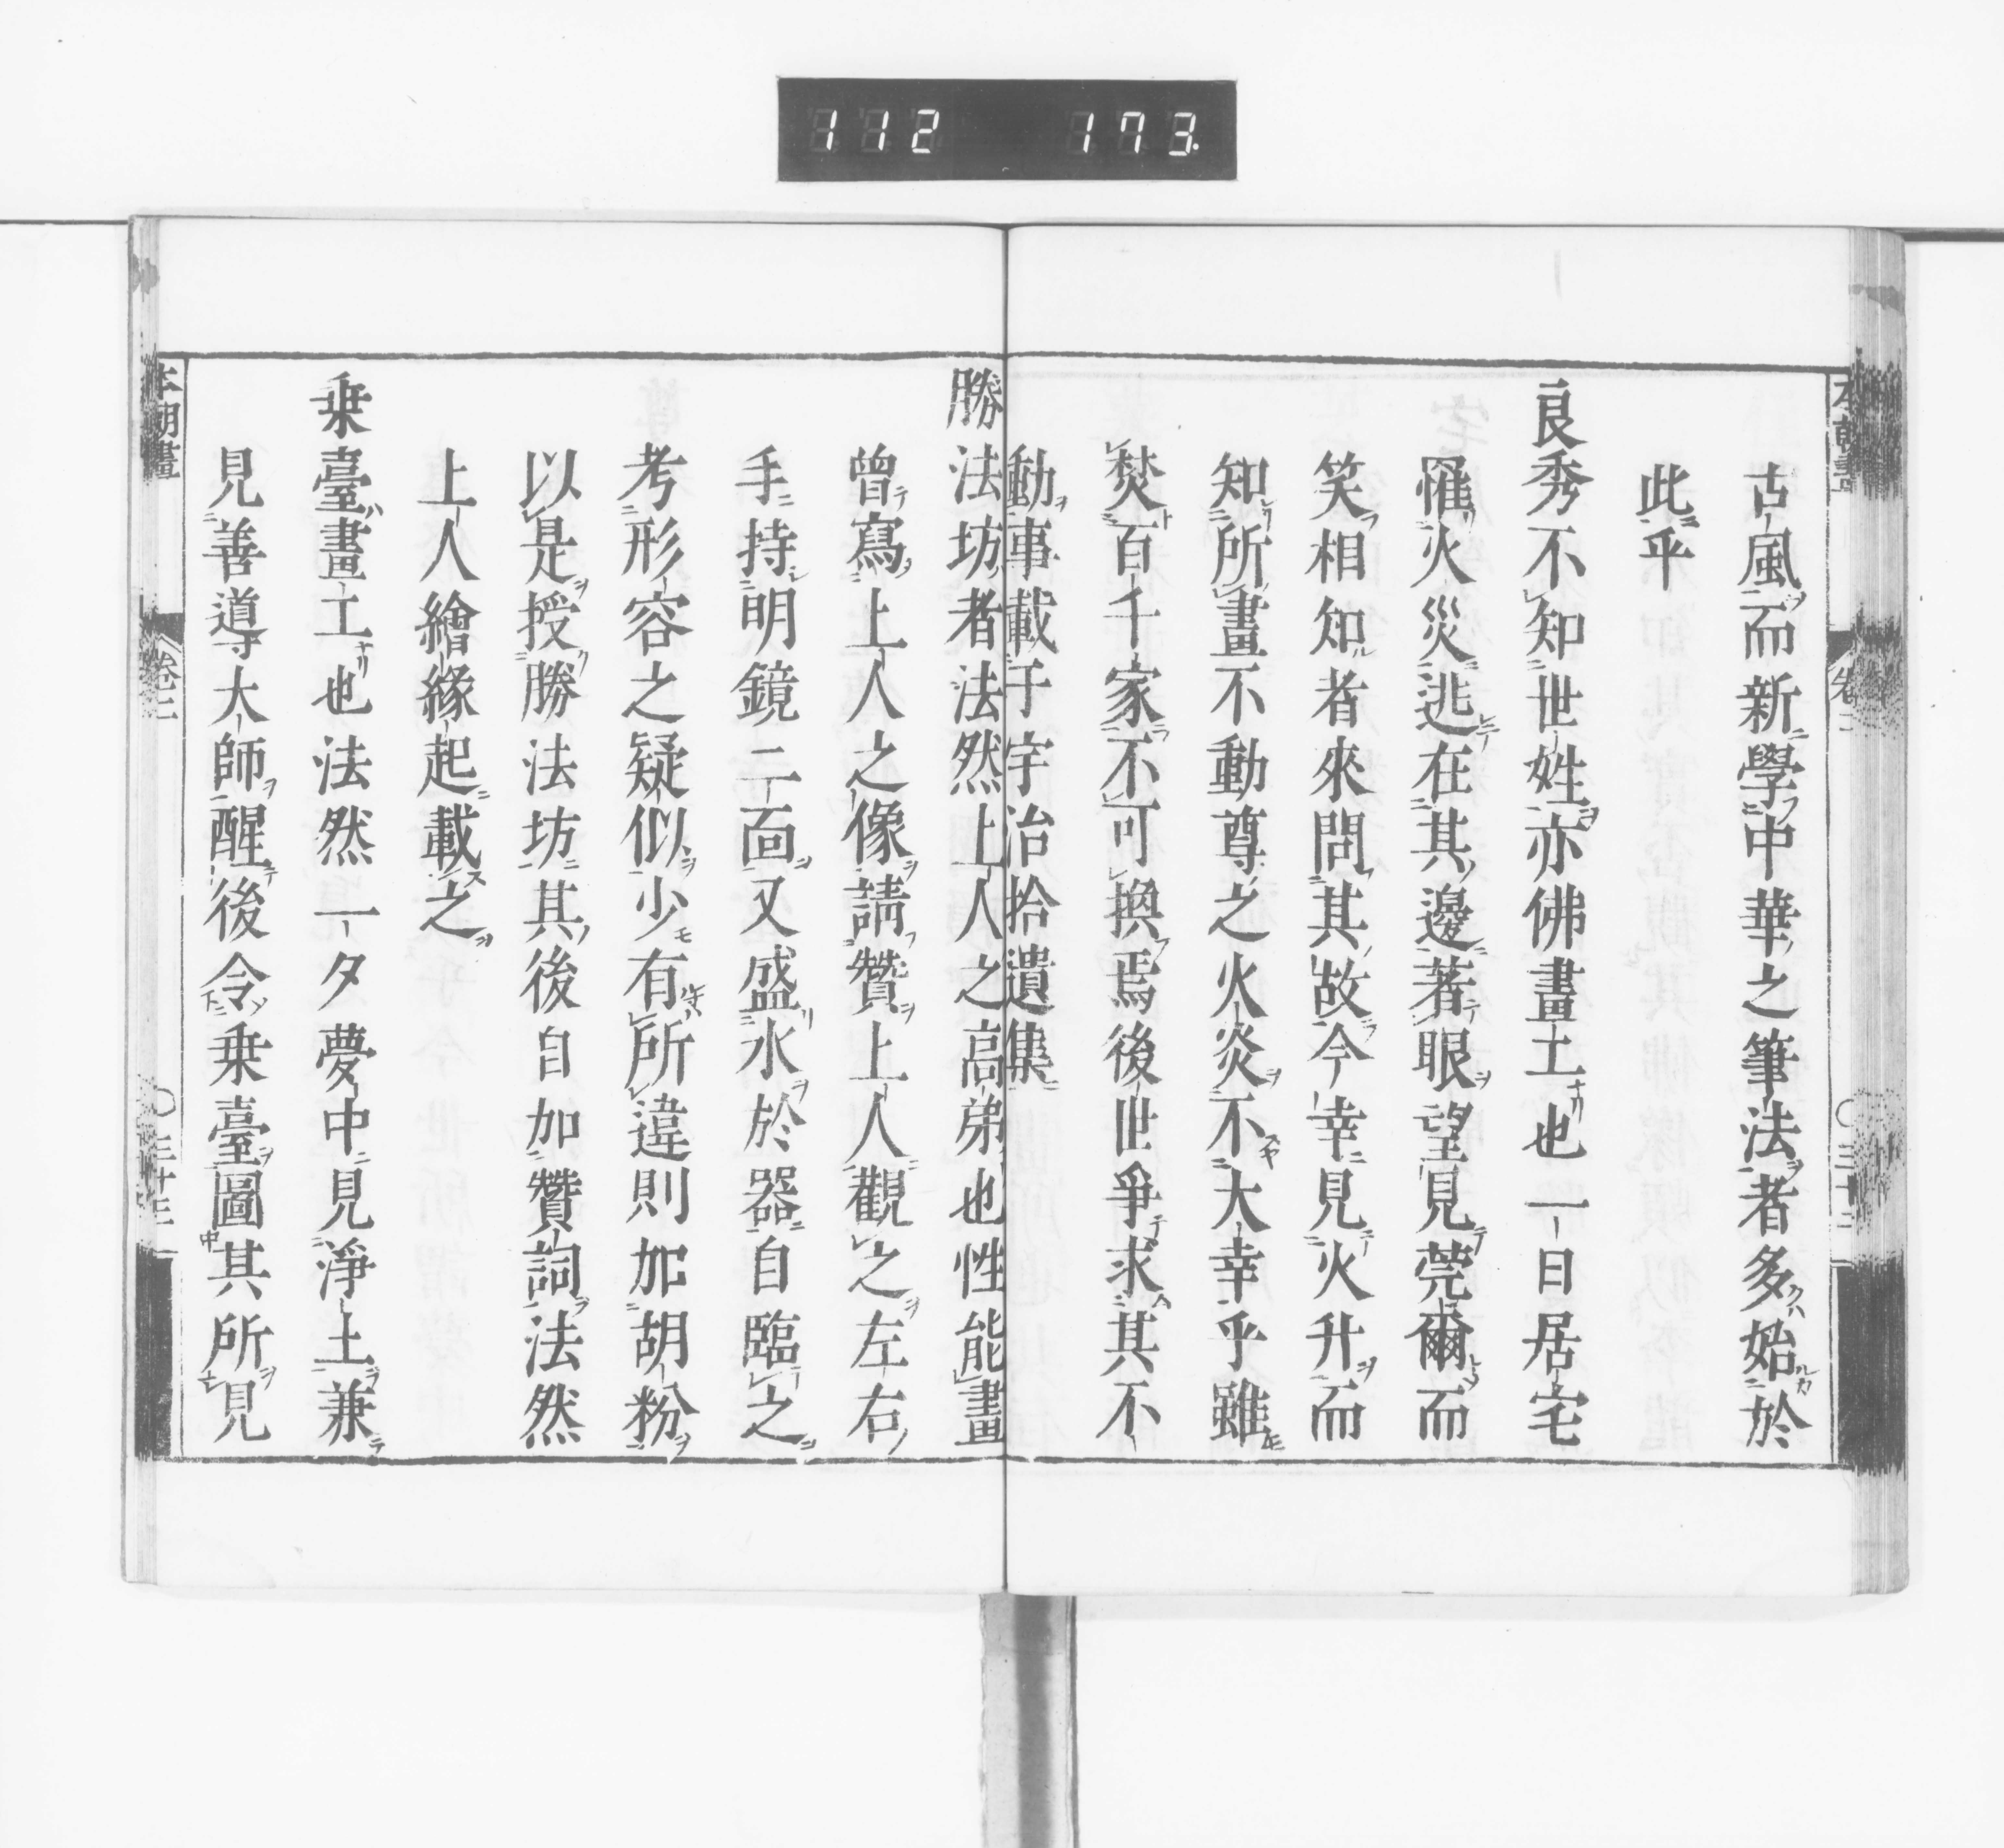 112 173
本朝畫
卷二
〇三十二
古風而新學中華之筆法者多始於
此乎
良秀不知世姓亦佛畫工也一日居宅
罹火災逃在其邊著眼望見莞爾而
笑相知者來問其故今幸見火升而
知所畫不動尊之火炎不大幸乎雖
焚百千家不可換焉後世爭求其不
動事載于宇治拾遺集
勝法坊者法然上人之高弟也性能畫
曾寫上人之像請贊上人觀之左右
手持明鏡二面又盛水於器自臨之
考形容之疑似少有所違則加胡粉
以是授勝法坊其後自加贊詞法然
上人繪緣起載之
乗臺畫工也法然一夕夢中見淨土兼
見善導大師醒後令乗臺圖其所見
本朝畫
卷二
〇三十三